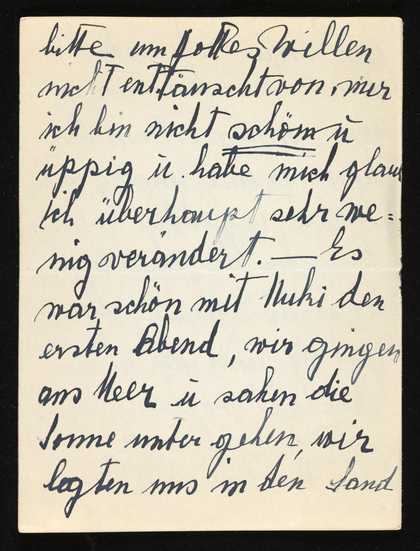 bitte um Gottes Willen
nicht enttäuscht von mir
ich bin nicht schön u
üppig u. habe mich glaub
ich überhaupt sehr we=
nig verändert. — Es
war schön mit Muki den
ersten Abend, wir gingen
ans Meer u sahen die
Sonne unter gehen, wir
legten uns in den Sand